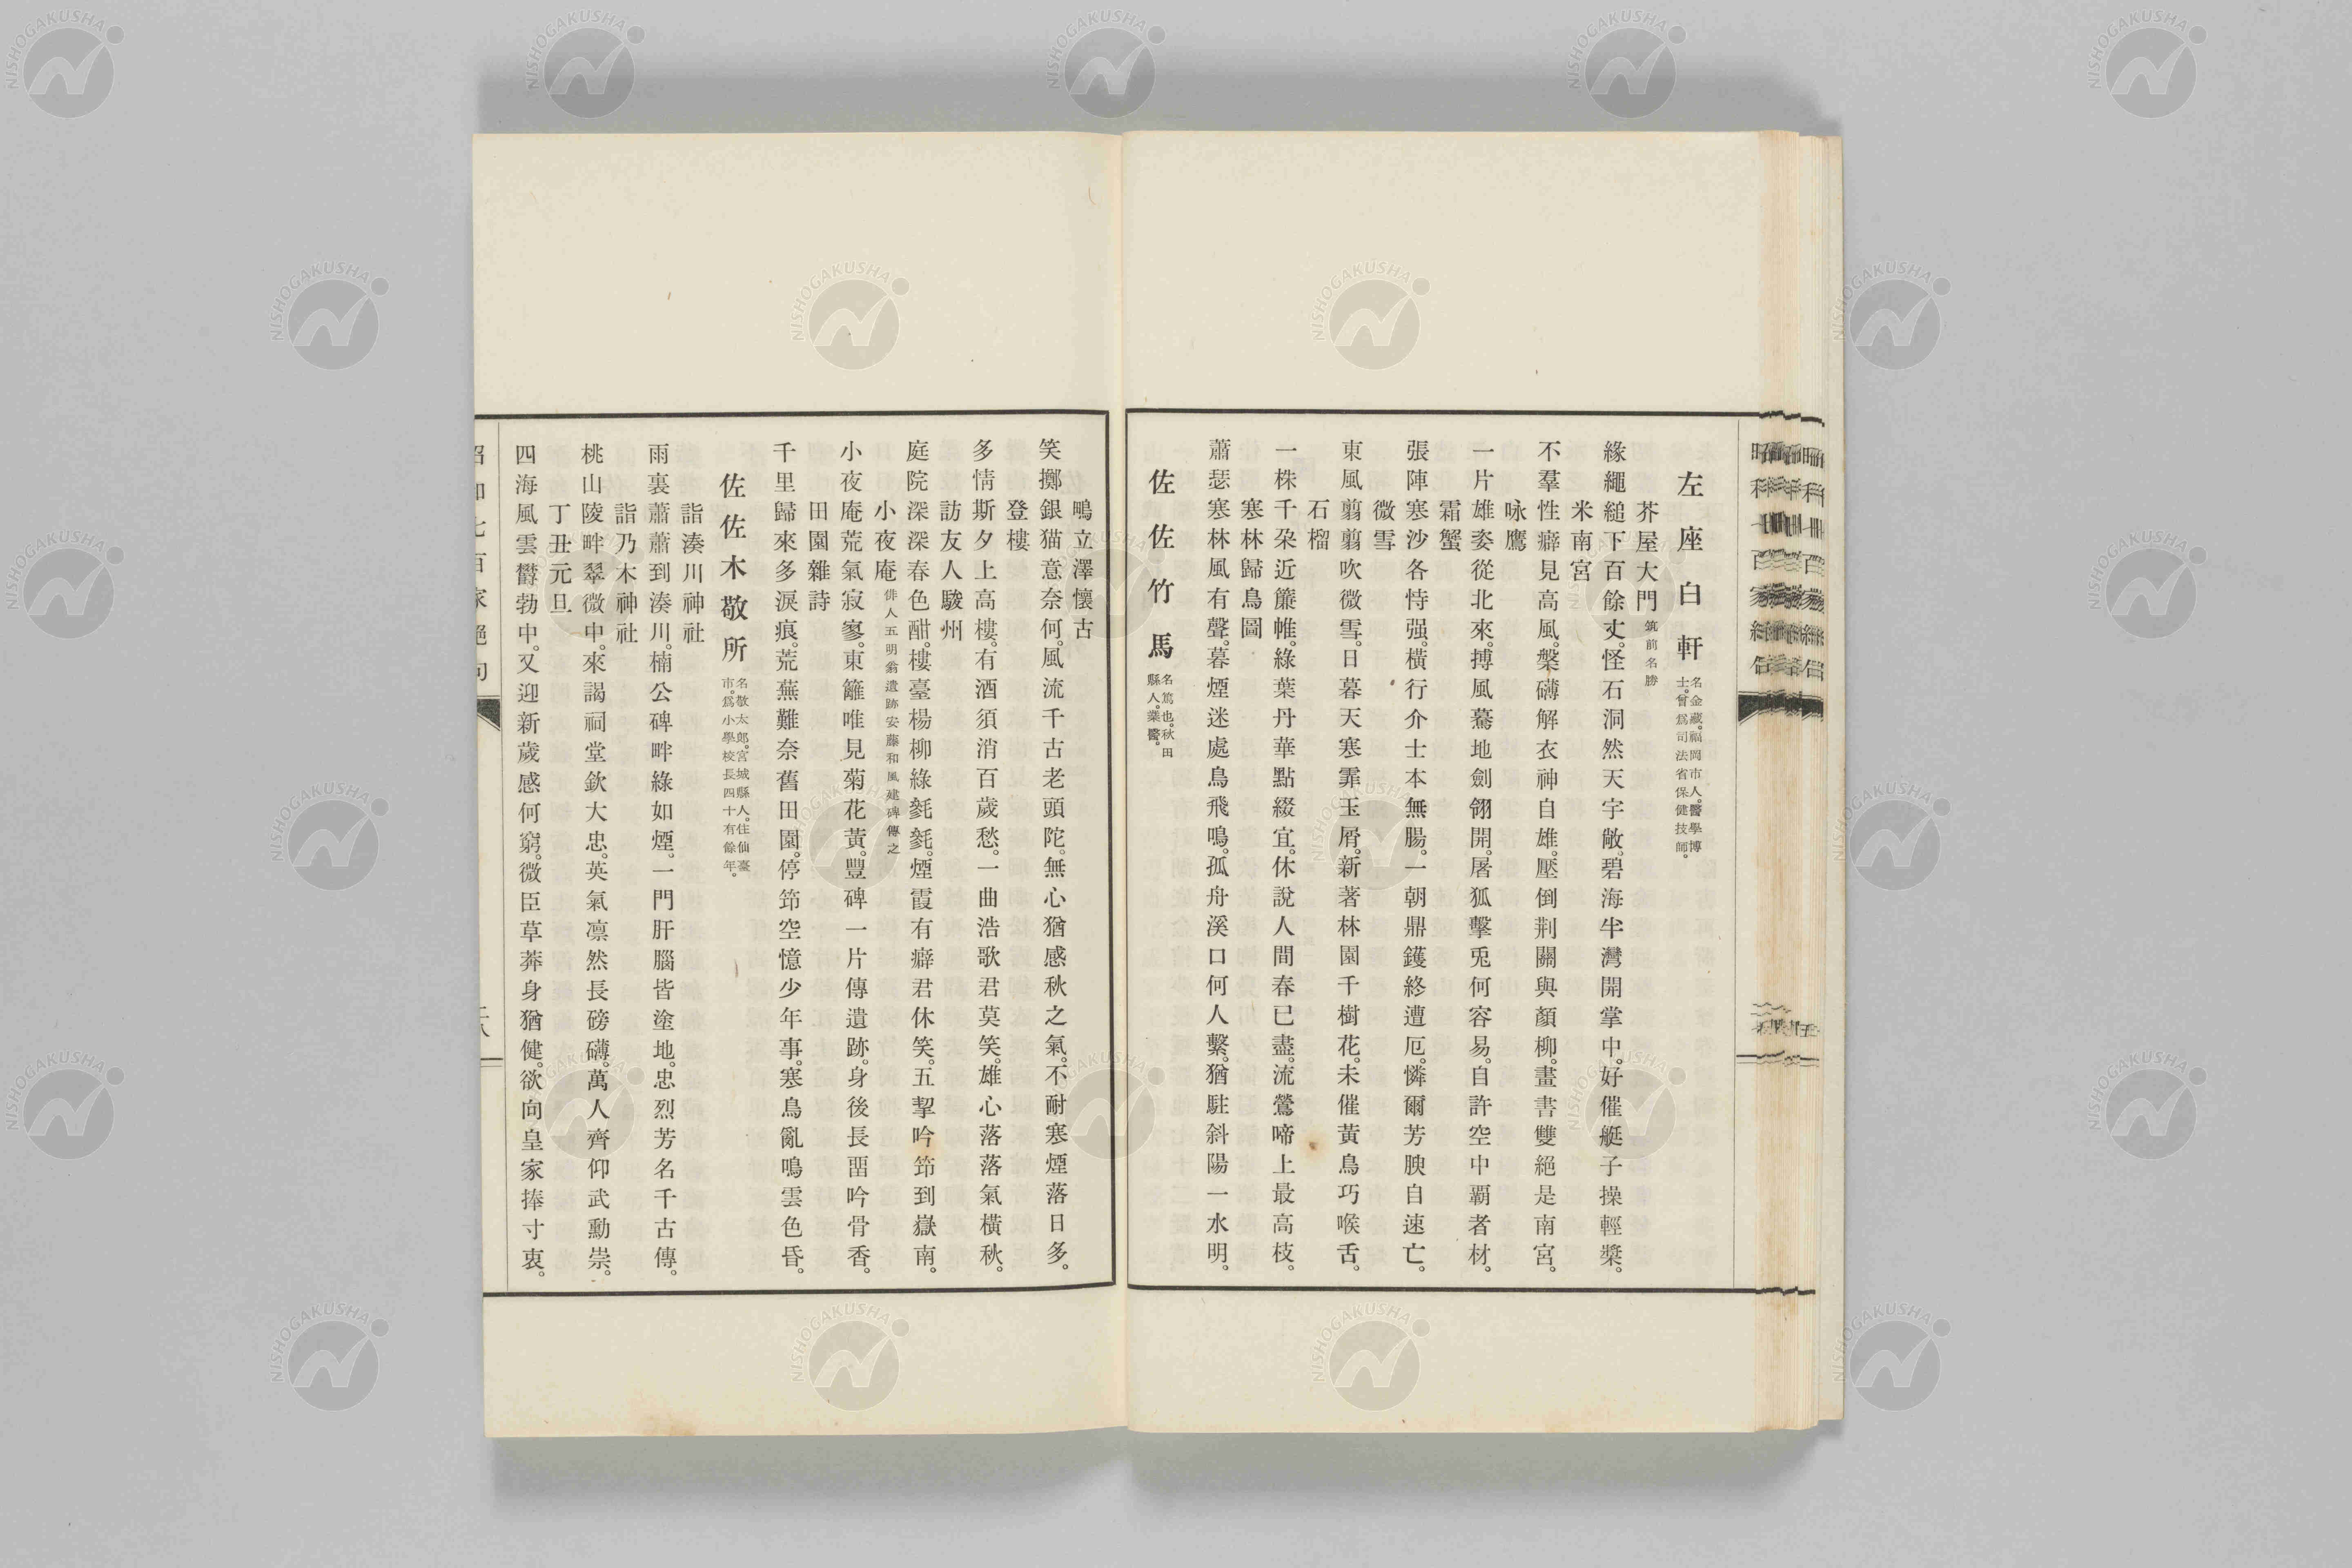 左座白軒 名金藏。福岡市人。醫學博士。曾爲司法省保健技師。
芥屋大門 筑前名勝
緣繩縋下百餘丈。怪石洞然天宇敞。碧海半灣開掌中。好催艇子操輕槳。
米南宮
不羣性癖見高風。槃礴解衣神自雄。壓倒荆關與顏柳。畫書雙絕是南宮。
咏鷹
一片雄姿從北來。搏風驀地劍翎開。屠狐擊兎何容易。自許空中覇者材。
霜蟹
張陣寒沙各恃强。橫行介士本無腸。一朝鼎鑊終遭厄。憐爾芳腴自速亡。
微雪
東風翦翦吹微雪。日暮天寒霏玉屑。新著林園千樹花。未催黃鳥巧喉舌。
石榴
一株千朶近簾帷。綠葉丹華點綴宜。休說人間春已盡。流鶯啼上最高枝。
寒林歸鳥圖
蕭瑟寒林風有聲。暮煙迷處鳥飛鳴。孤舟溪口何人繫。猶駐斜陽一水明。
佐佐竹馬 名篤也。秋田縣人。業醫。
鴫立澤懷古
笑擲銀猫意奈何。風流千古老頭陀。無心猶感秋之氣。不耐寒煙落日多。
登樓
多情斯夕上高樓。有酒須消百歲愁。一曲浩歌君莫笑。雄心落落氣橫秋。
訪友人駿州
庭院深深春色酣。樓臺楊柳綠毿毿。煙霞有癖君休笑。五挈吟筇到嶽南。
小夜庵 俳人五明翁遺跡安藤和風建碑傳之
小夜庵荒氣寂寥。東籬唯見菊花黃。豐碑一片傳遺跡。身後長畱吟骨香。
田園雜詩
千里歸來多淚痕。荒蕪難奈舊田園。停筇空憶少年事。寒鳥亂鳴雲色昏。
佐佐木敬所 名敬太郎。宮城縣人。住仙臺市。爲小學校長四十有餘年。
詣湊川神社
雨裏蕭蕭到湊川。楠公碑畔綠如煙。一門肝腦皆塗地。忠烈芳名千古傳。
詣乃木神社
桃山陵畔翠微中。來謁祠堂欽大忠。英氣凛然長磅礴。萬人齊仰武勳崇。
丁丑元旦
四海風雲欝勃中。又迎新歲感何窮。微臣草莽身猶健。欲向皇家捧寸衷。